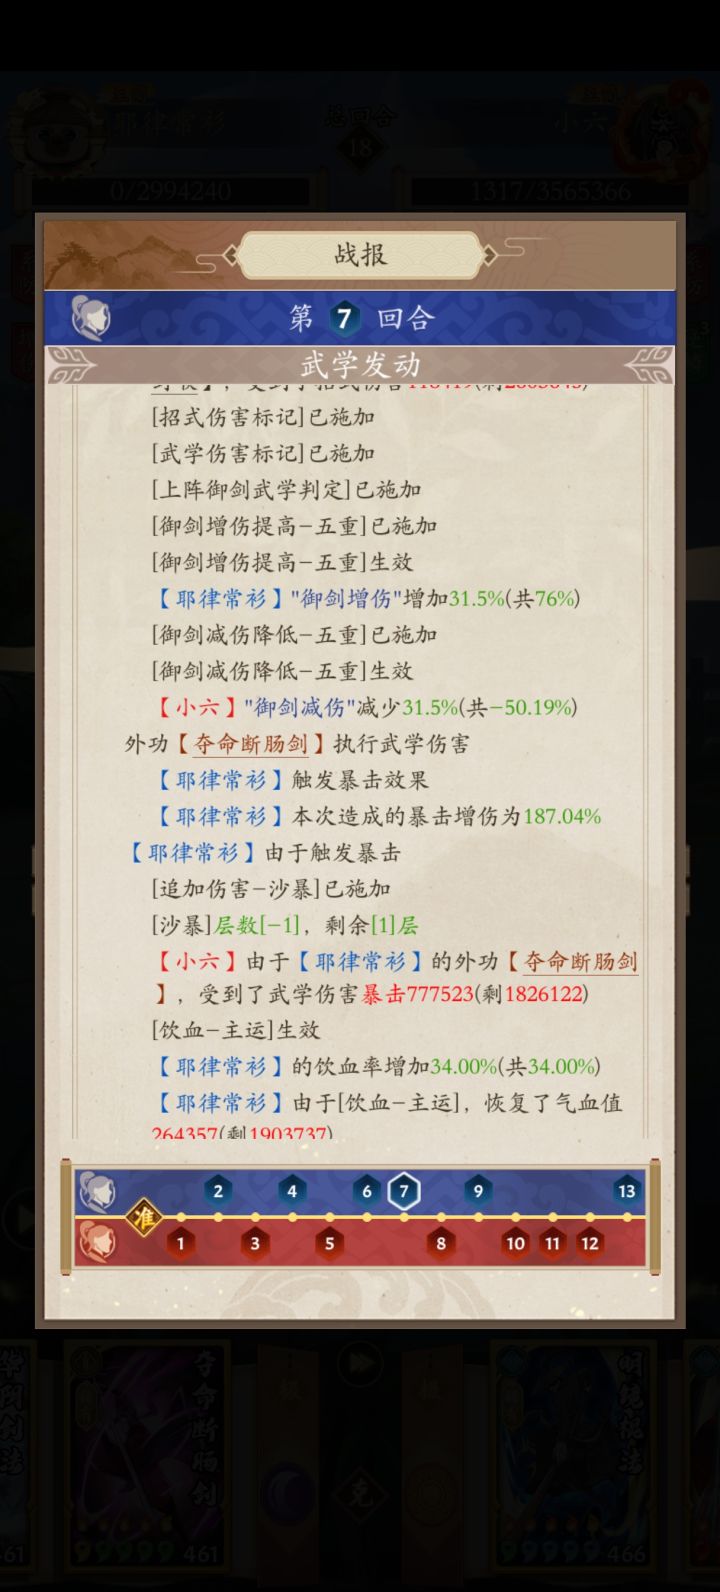 耶律常衫
总回合
小六
18
0/2994240
1317/3565366
战报
第 7 回合
武学发动
[招式伤害标记]已施加
[武学伤害标记]已施加
[上阵御剑武学判定]已施加
[御剑增伤提高-五重]已施加
[御剑增伤提高-五重]生效
【耶律常衫】"御剑增伤"增加31.5%(共76%)
[御剑减伤降低-五重]已施加
[御剑减伤降低-五重]生效
【小六】"御剑减伤"减少31.5%(共-50.19%)
外功【夺命断肠剑】执行武学伤害
【耶律常衫】触发暴击效果
【耶律常衫】本次造成的暴击增伤为187.04%
【耶律常衫】由于触发暴击
[追加伤害-沙暴]已施加
[沙暴]层数[-1]，剩余[1]层
【小六】由于【耶律常衫】的外功【夺命断肠剑
】，受到了武学伤害暴击777523(剩1826122)
[饮血-主运]生效
【耶律常衫】的饮血率增加34.00%(共34.00%)
【耶律常衫】由于[饮血-主运]，恢复了气血值
264357(剩1903737)
2 4 6 7 9 13
准
1 3 5 8 10 11 12
夺命断肠剑
克
461
466